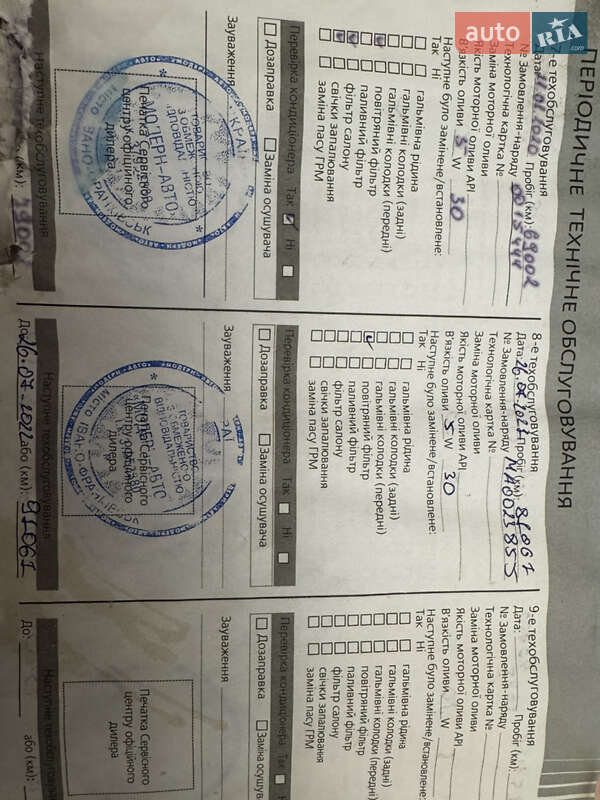 auto RIA.com
ПЕРІОДИЧНЕ ТЕХНІЧНЕ ОБСЛУГОВУВАННЯ
7-е техобслуговування
Дата: Пробіг (км): 69002
№ Замовлення-наряду
Технологічна картка №
Заміна моторної оливи
Якість моторної оливи API
В'язкість оливи 5 W 30
Наступне було замінене/встановлене:
Так Ні
гальмівна рідина
гальмівні колодки (задні)
гальмівні колодки (передні)
повітряний фільтр
паливний фільтр
фільтр салону
свічки запалювання
заміна пасу ГРМ
Перевірка кондиціонера Так Ні
Дозаправка Заміна осушувача
Зауваження
Печатка Сервісного
центру офіційного
дилера
Наступне техобслуговування
(км):
8-е техобслуговування
Дата: Пробіг (км): 81061
№ Замовлення-наряду
Технологічна картка №
Заміна моторної оливи
Якість моторної оливи API
В'язкість оливи 5 W 30
Наступне було замінене/встановлене:
Так Ні
гальмівна рідина
гальмівні колодки (задні)
гальмівні колодки (передні)
повітряний фільтр
паливний фільтр
фільтр салону
свічки запалювання
заміна пасу ГРМ
Перевірка кондиціонера Так Ні
Дозаправка Заміна осушувача
Зауваження
Печатка Сервісного
центру офіційного
дилера
Наступне техобслуговування
До: 26.07-2022 або (км): 91061
9-е техобслуговування
Дата: Пробіг (км):
№ Замовлення-наряду
Технологічна картка №
Заміна моторної оливи
Якість моторної оливи API
В'язкість оливи W
Наступне було замінене/встановлене:
Так Ні
гальмівна рідина
гальмівні колодки (задні)
гальмівні колодки (передні)
повітряний фільтр
паливний фільтр
фільтр салону
свічки запалювання
заміна пасу ГРМ
Перевірка кондиціонера Так Ні
Дозаправка Заміна осушувача
Зауваження
Печатка Сервісного
центру офіційного
дилера
Наступне
До: або (км):